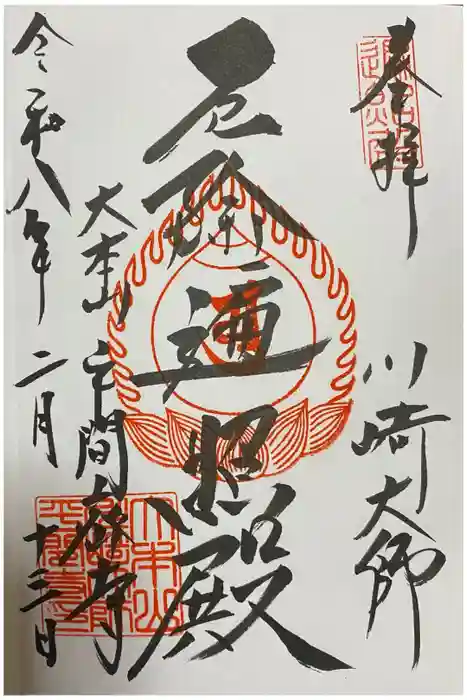 奉拝
川崎大師
厄除遍照殿
大本山平間寺
令和八年二月十三日